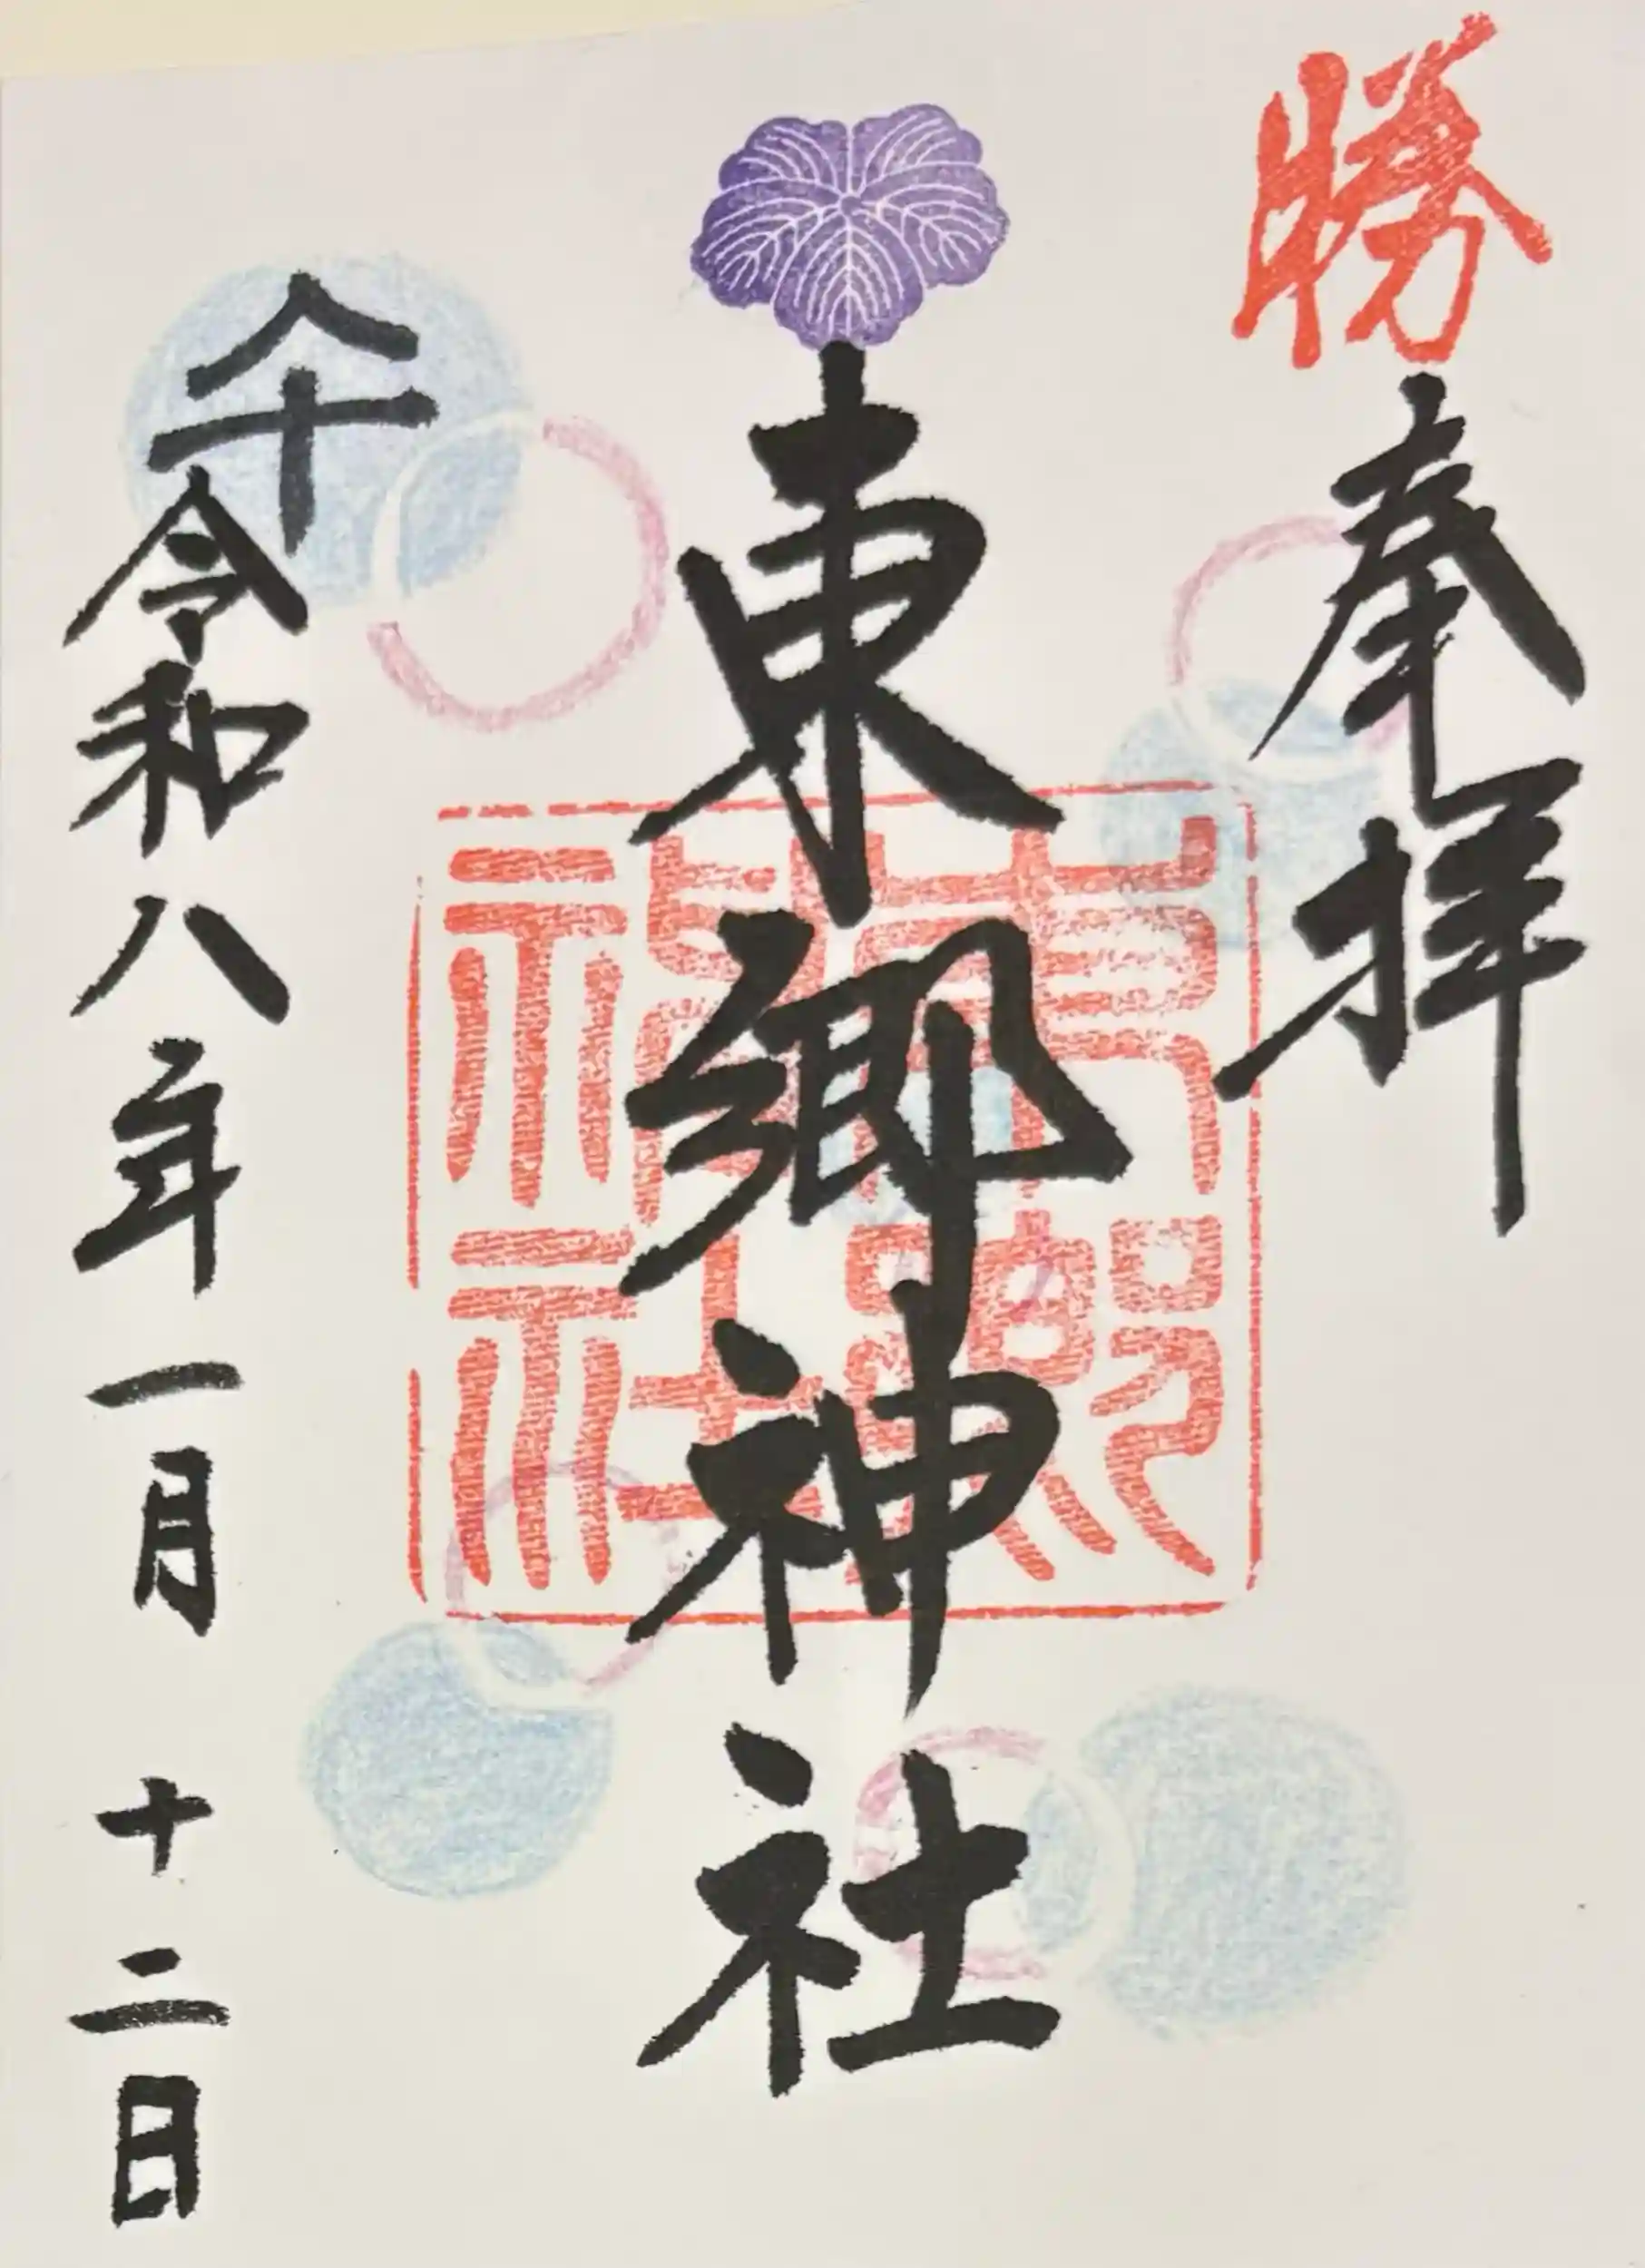 勝
奉拝
東郷神社
午
令和八年一月十二日